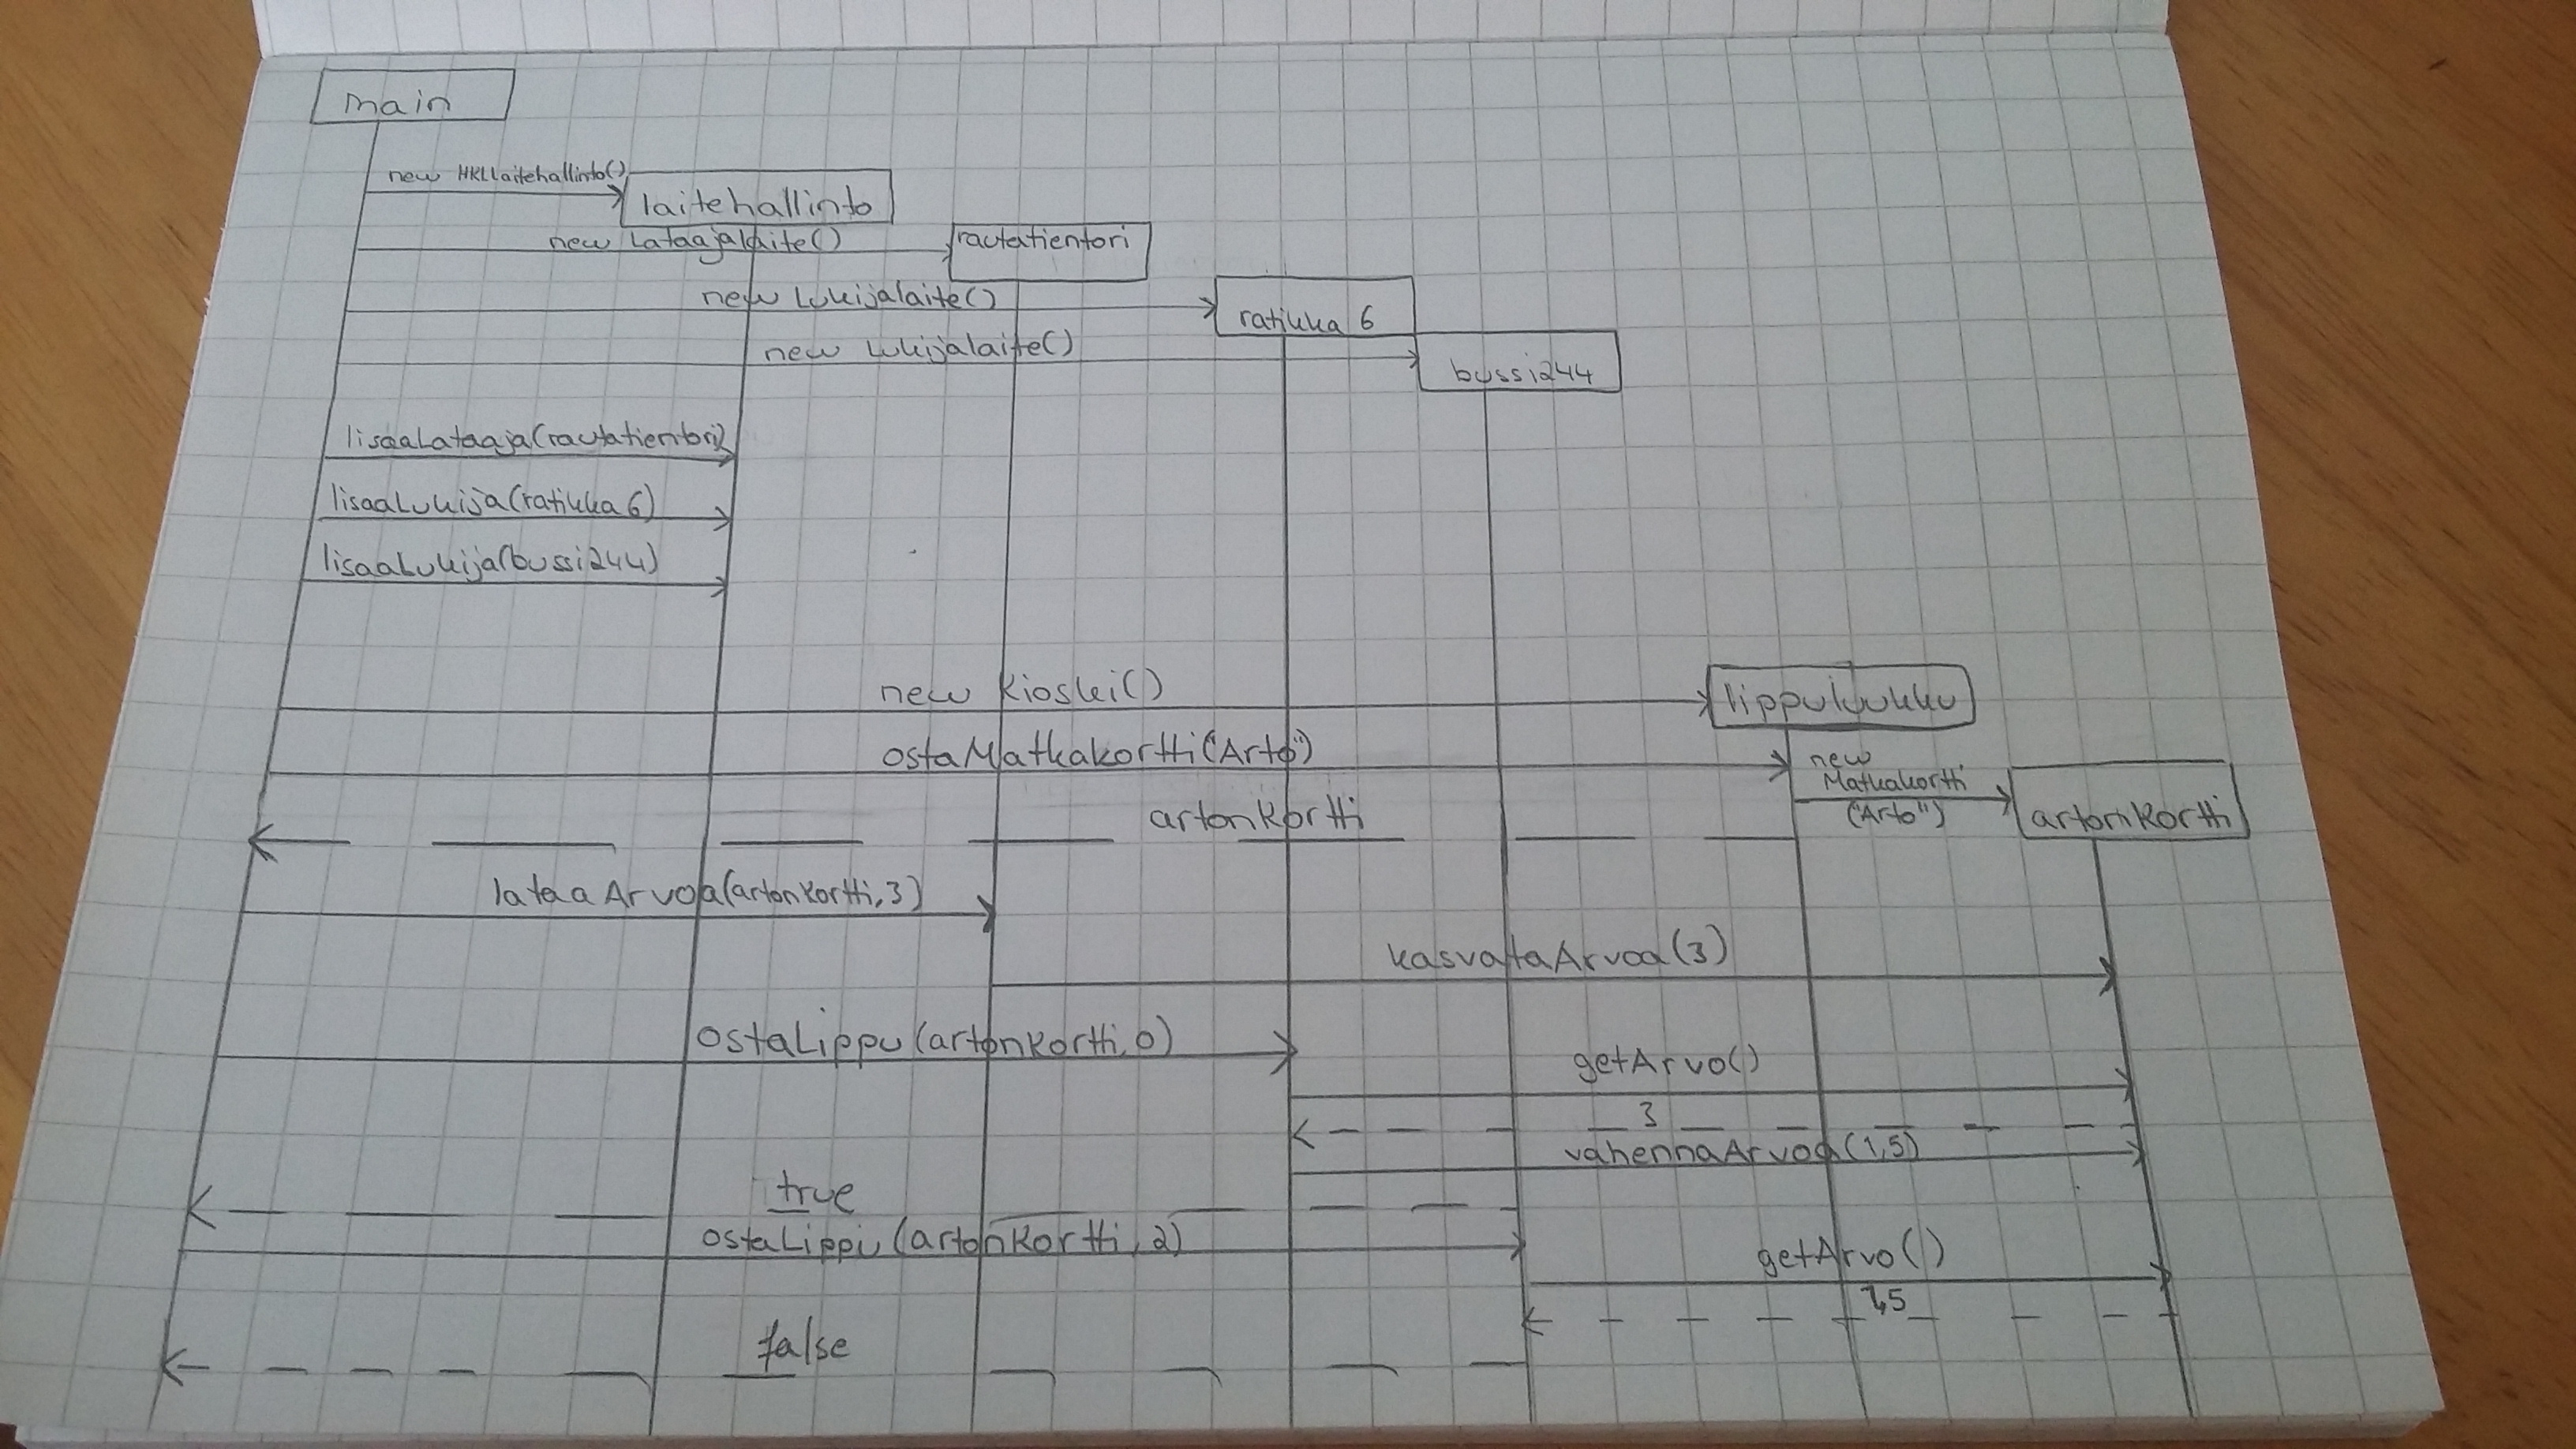 main
new HKLLaitehallinto()
laitehallinto
new Lataajalaite()
rautatientori
new Lukijalaite()
ratikka 6
new Lukijalaite()
bussi244
lisaaLataaja(rautatientori)
lisaaLukija(ratikka6)
lisaaLukija(bussi244)
new Kioski()
lippuluukku
ostaMatkakortti("Arto")
new
Matkakortti
("Arto")
artonKortti
artonKortti
lataaArvoa(artonKortti,3)
kasvataArvoa(3)
ostaLippu(artonKortti,0)
getArvo()
3
vahennaArvoa(1,5)
true
ostaLippu(artonKortti,2)
getArvo()
1,5
false